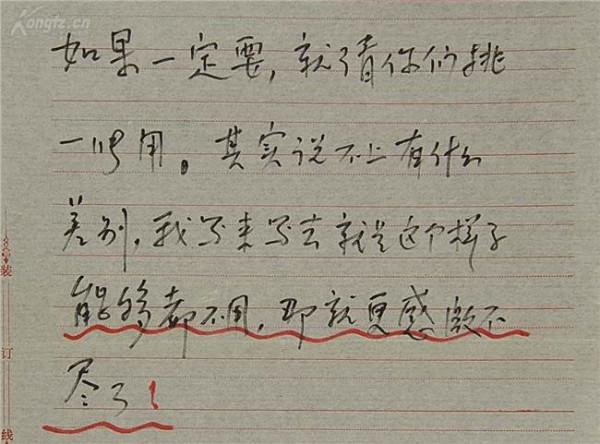 Kongfz.cn
如果一定要，就请你们挑
一时用。其实说不上有什么
差别，我写来写去就是这个样子
能够都不用，那就更感激不
尽了！
装
订
线